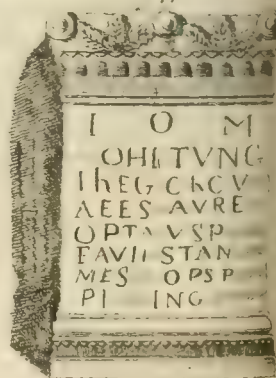 I O M
OHI TVNG
IhEG ChCV
AEES AVRE
OPTA VSP
FAVII STAN
MES OPSP
PI ING